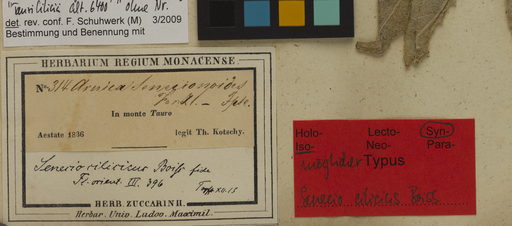 Transcilicia alt. 6400' " ohne Nr.
det. rev. conf. F. Schuhwerk (M) 3/2009
Bestimmung und Benennung mit
HERBARIUM REGIUM MONACENSE
No. 314. Arnica Senecionoides
In monte Tauro
Aestate 1836 legit Th. Kotschy.
Senecio cilicicus Boiss fide
Fl. orient. III. 396
HERB. ZUCCARINII.
Herbar. Univ. Ludov. Maximil.
Holo- Lecto- Syn-
Iso- Neo- Para-
möglicher Typus
Senecio cilicicus Boiss.